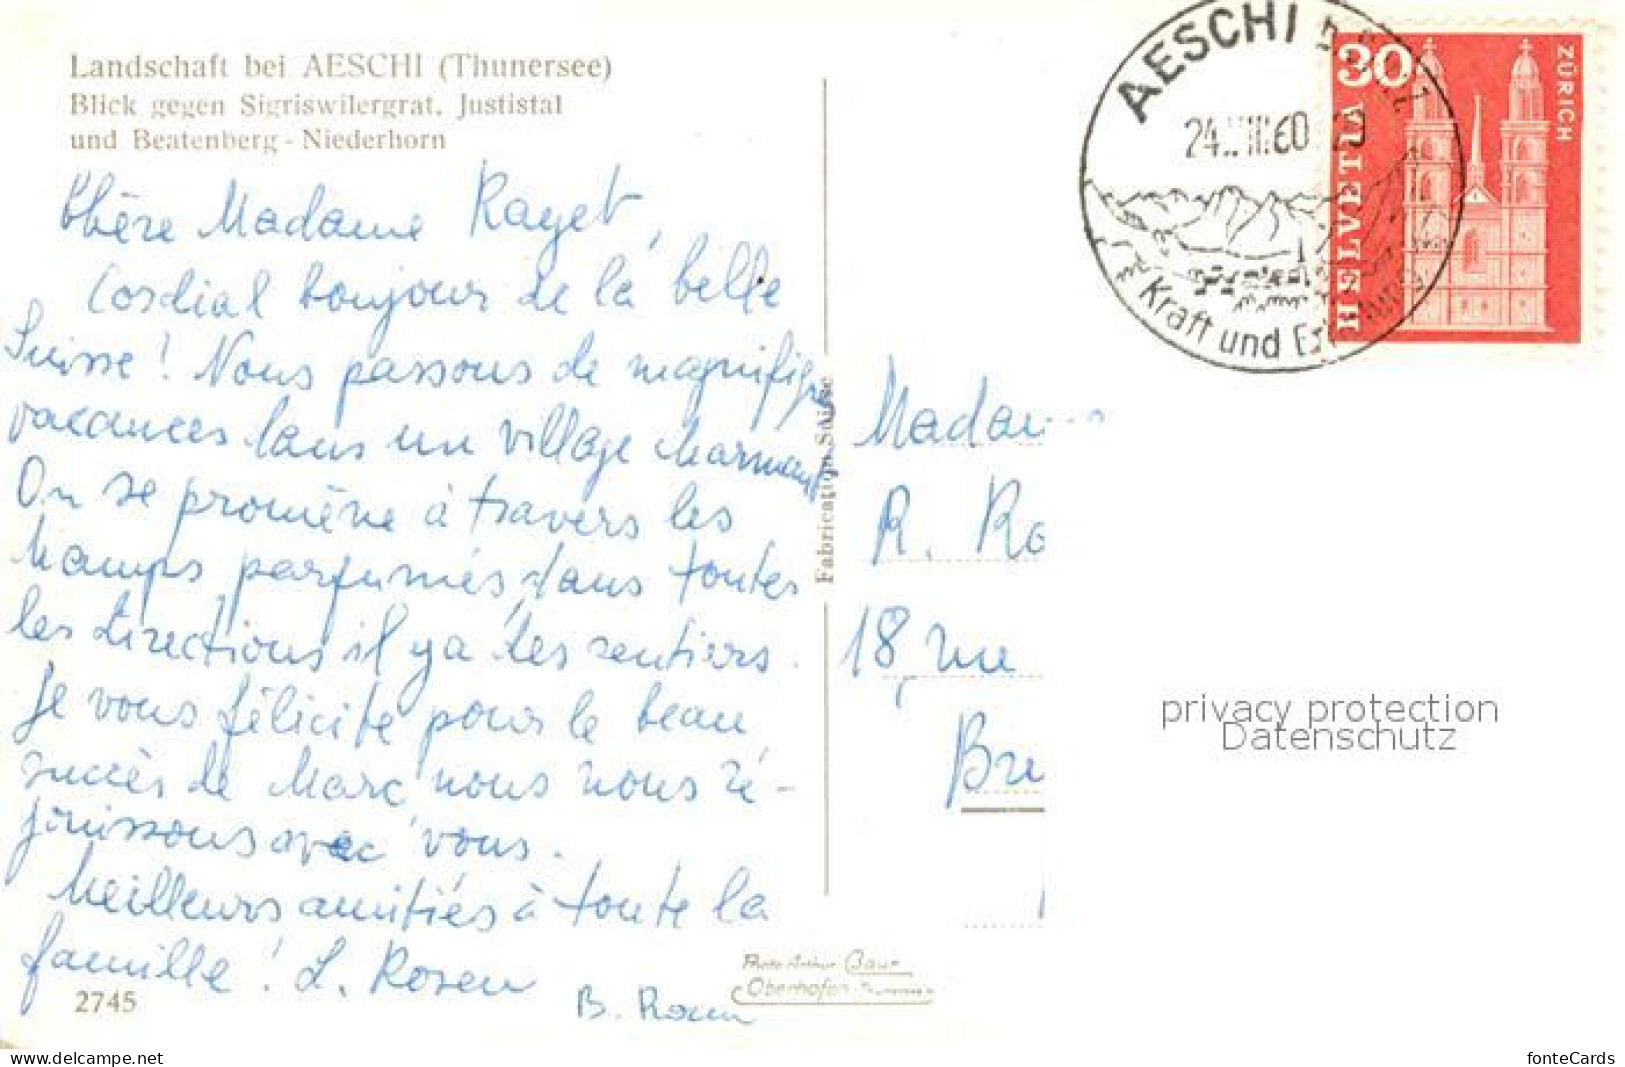 Landschaft bei AESCHI (Thunersee)
Blick gegen Sigriswilergrat, Justistal
und Beatenberg - Niederhorn
Chère Madame Rayet,
Cordial bonjour de la belle
Suisse! Nous passons de magnifiques
vacances dans un village charmant
On se promène à travers les
champs parfumés, dans toutes
les directions il y a des sentiers.
Je vous félicite pour le beau
succès de Marc, nous nous ré-
jouissons avec vous.
Meilleurs amitiés à toute la
famille! L. Rosen
B. Rosen
2745
Fabrication Suisse
Photo Arthur Baur
Oberhofen
AESCHI b. Spiez
24.VIII.60 20
Kraft und Erholung
30
HELVETIA
ZÜRICH
Madame
R. Ra
18, rue
Bru
privacy protection
Datenschutz
www.delcampe.net
fonteCards